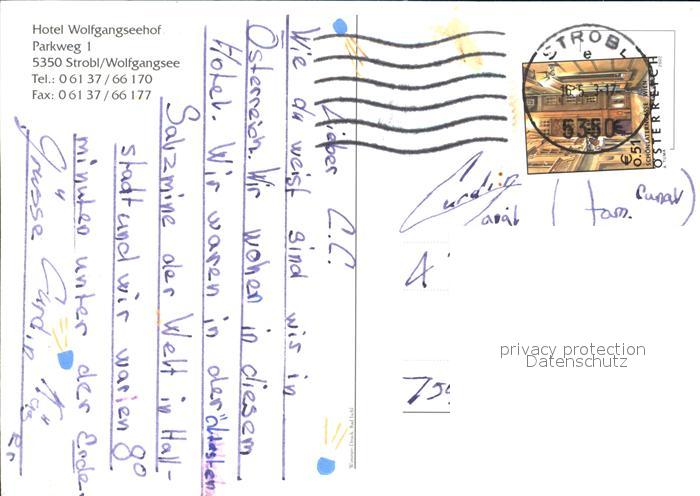 Hotel Wolfgangseehof
Parkweg 1
5350 Strobl/Wolfgangsee
Tel.: 0 61 37 / 66 170
Fax: 0 61 37 / 66 177
Lieber C.C.
Wie du weist sind wir in
Österreich. Wir wohen in diesem
Hotel. Wir waren in der ältesten
Salzmine der Welt in Hall-
stadt und wir waren 90
minuten unter der Erde.
Grüsse
STROBL
e
16.5.
5350
€ 0.51
SCHÖNLATERNGASSE WIEN
ÖSTERREICH
(fam. Cunat)
4
75
privacy protection
Datenschutz